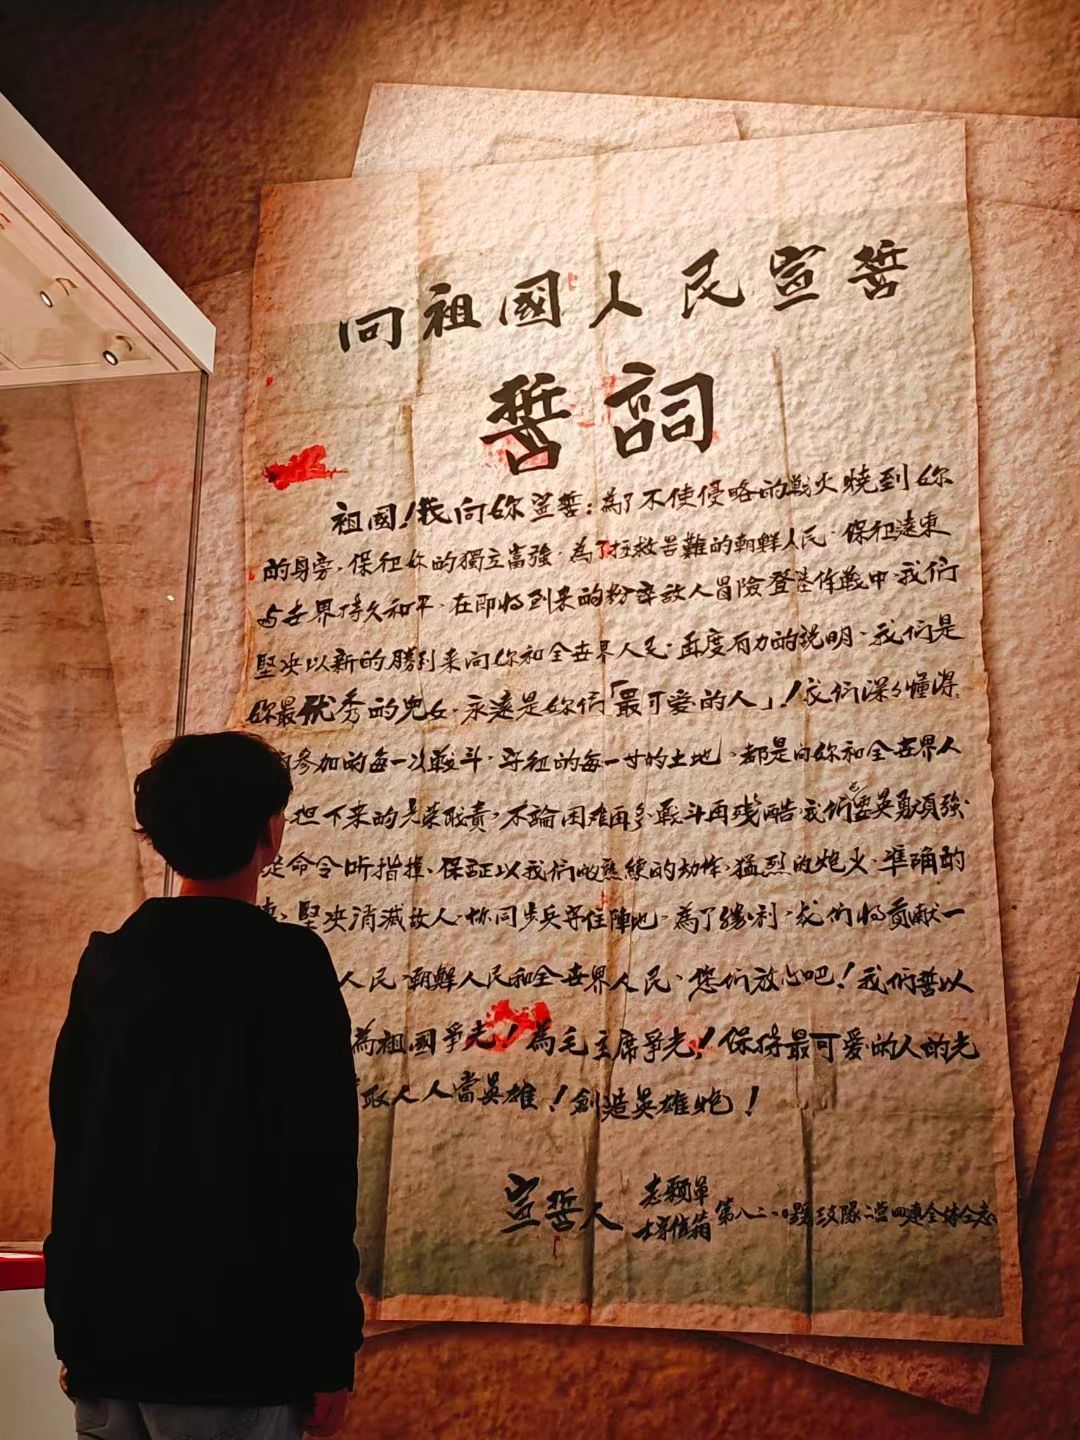 向祖國人民宣誓
誓詞
祖國!我向你宣誓:為了不使侵略的戰火燒到你
的身旁、保衽你的獨立富強、為了拯救苦難的朝鮮人民、保衽遠東
与世界持久和平、在即將到來的粉碎敌人冒險登陸作戰中、我们
堅决以新的勝利來向你和全世界人民、再度有力的說明、我们是
你最优秀的兒女、永遠是你們「最可爱的人」!我们深々懂得、
参加的每一次戰斗、守衽的每一寸的土地、都是向你和全世界人
担下来的光荣职責、不論困难再多戰斗再残酷、我们要英勇頑強、
命令听指揮、保証以我们的熟練的动作、猛烈的炮火、準确的
堅决消滅敌人、協同步兵守住陣地、為了勝利、我们將貢献一
人民、朝鮮人民和全世界人民、您们放心吧!我们誓以
為祖國爭光!為毛主席爭光!保持最可爱的人的光
取人人當英雄!創造英雄炮!
宣誓人 志願軍 第八二一〇 支隊二营四連全体